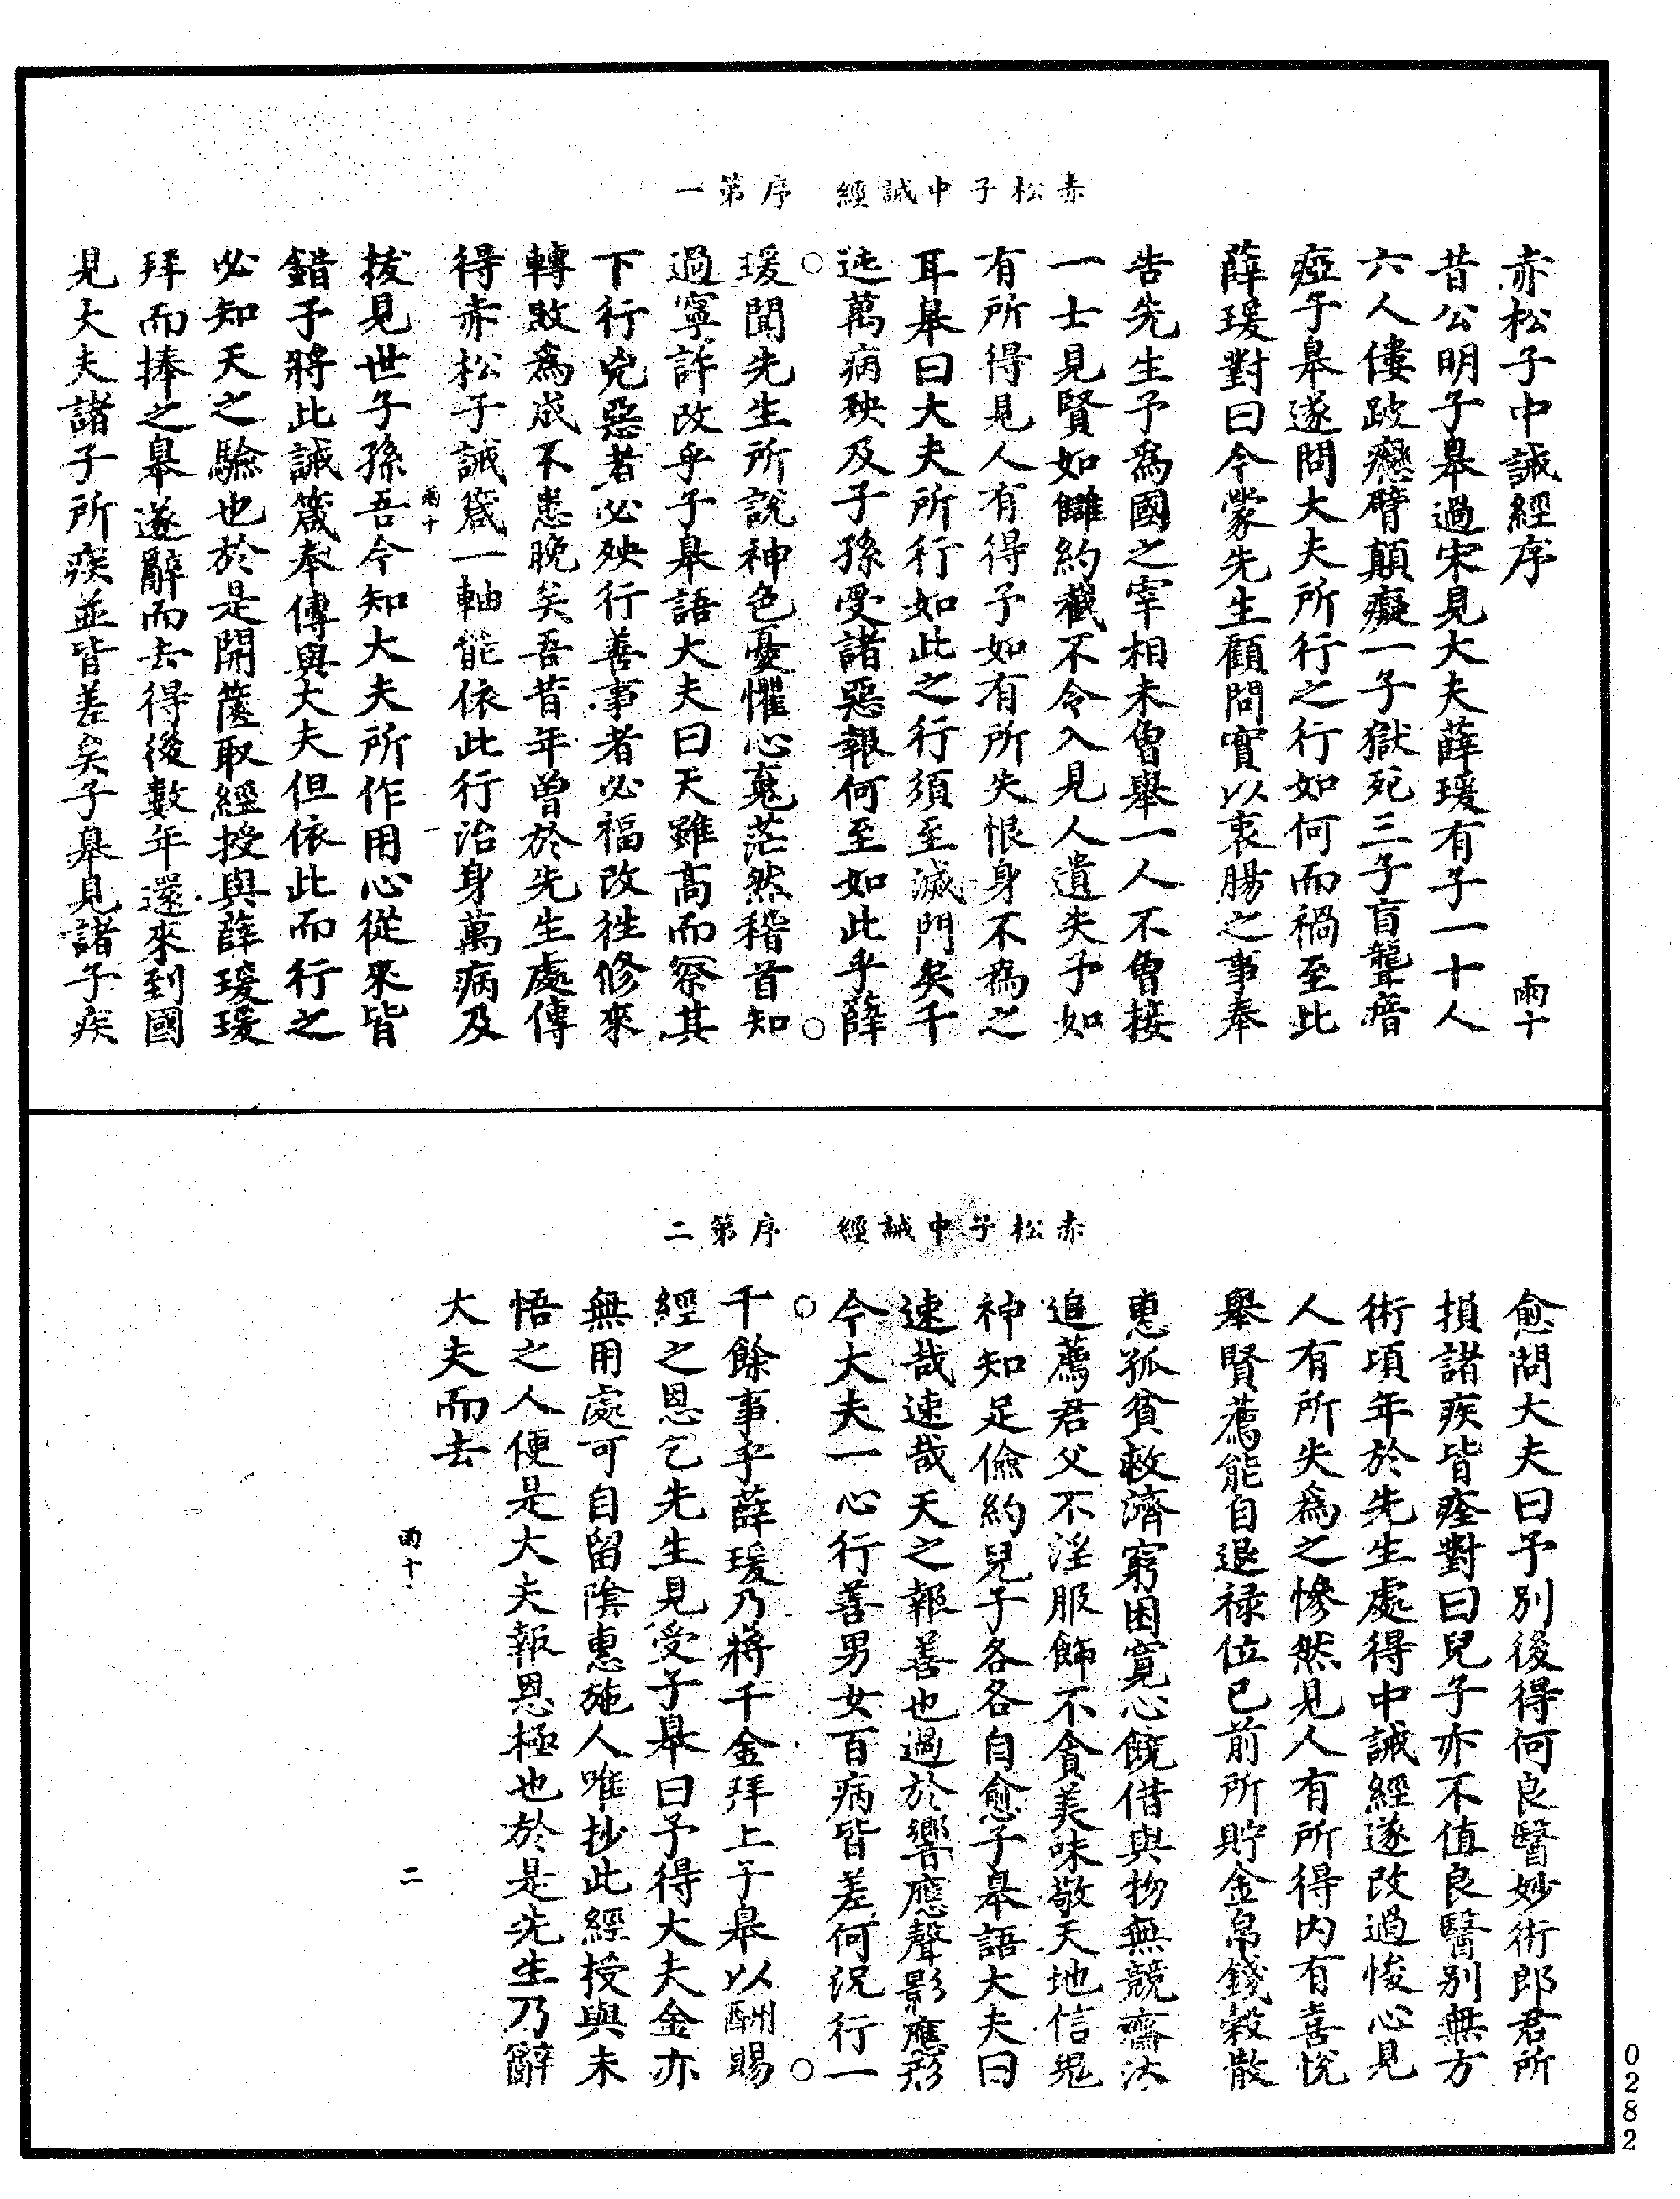 赤松子中誡經　序第一
赤松子中誡經序　雨十
昔公明子臯過宋見大夫薛瑗有子一十人
六人僂跛癵臂顛癡一子獄死三子盲聾瘖
瘂子臯遂問大夫所行之行如何而禍至此
薛瑗對曰今蒙先生顧問實以衷腸之事奉
告先生予爲國之宰相未曾舉一人不曾接
一士見賢如讎約截不令入見人遺失予如
有所得見人有得予如有所失恨身不爲之
耳臯曰大夫所行如此之行須至滅門矣千
迍萬病殃及子孫受諸惡報何至如此乎薛
瑗聞先生所說神色憂懼心䰟茫然稽首知
過寧許改乎子臯語大夫曰天雖高而察其
下行兇惡者必殃行善事者必福改徃修來
轉敗爲成不患晚矣吾昔年曾於先生處傳
得赤松子誡箴一軸能依此行治身萬病及
雨十　一
拔見世子孫吾今知大夫所作用心從來皆
錯予將此誡箴奉傳與大夫但依此而行之
必知天之驗也於是開篋取經授與薛瑗瑗
拜而捧之臯遂辭而去得後數年還來到國
見大夫諸子所疾並皆差矣子臯見諸子疾
赤松子中誡經　序第二
愈問大夫曰予別後得何良醫妙術郎君所
損諸疾皆痊對曰兒子亦不值良醫別無方
術項年於先生處得中誡經遂改過悛心見
人有所失爲之慘然見人有所得內有喜悅
舉賢薦能自退祿位已前所貯金帛錢穀散
惠孤貧救濟窮困寛心饒借與物無競齋法
追薦君父不淫服飾不貪美味敬天地信鬼
神知足儉約兒子各各自愈子臯語大夫曰
速哉速哉天之報善也過於響應聲影應形
今大夫一心行善男女百病皆差何況行一
千餘事乎薛瑗乃將千金拜上子臯以酬賜
經之恩乞先生見受子臯曰予得大夫金亦
無用處可自留陰惠施人唯抄此經授與未
悟之人便是大夫報恩極也於是先生乃辭
大夫而去
雨十　二
0282